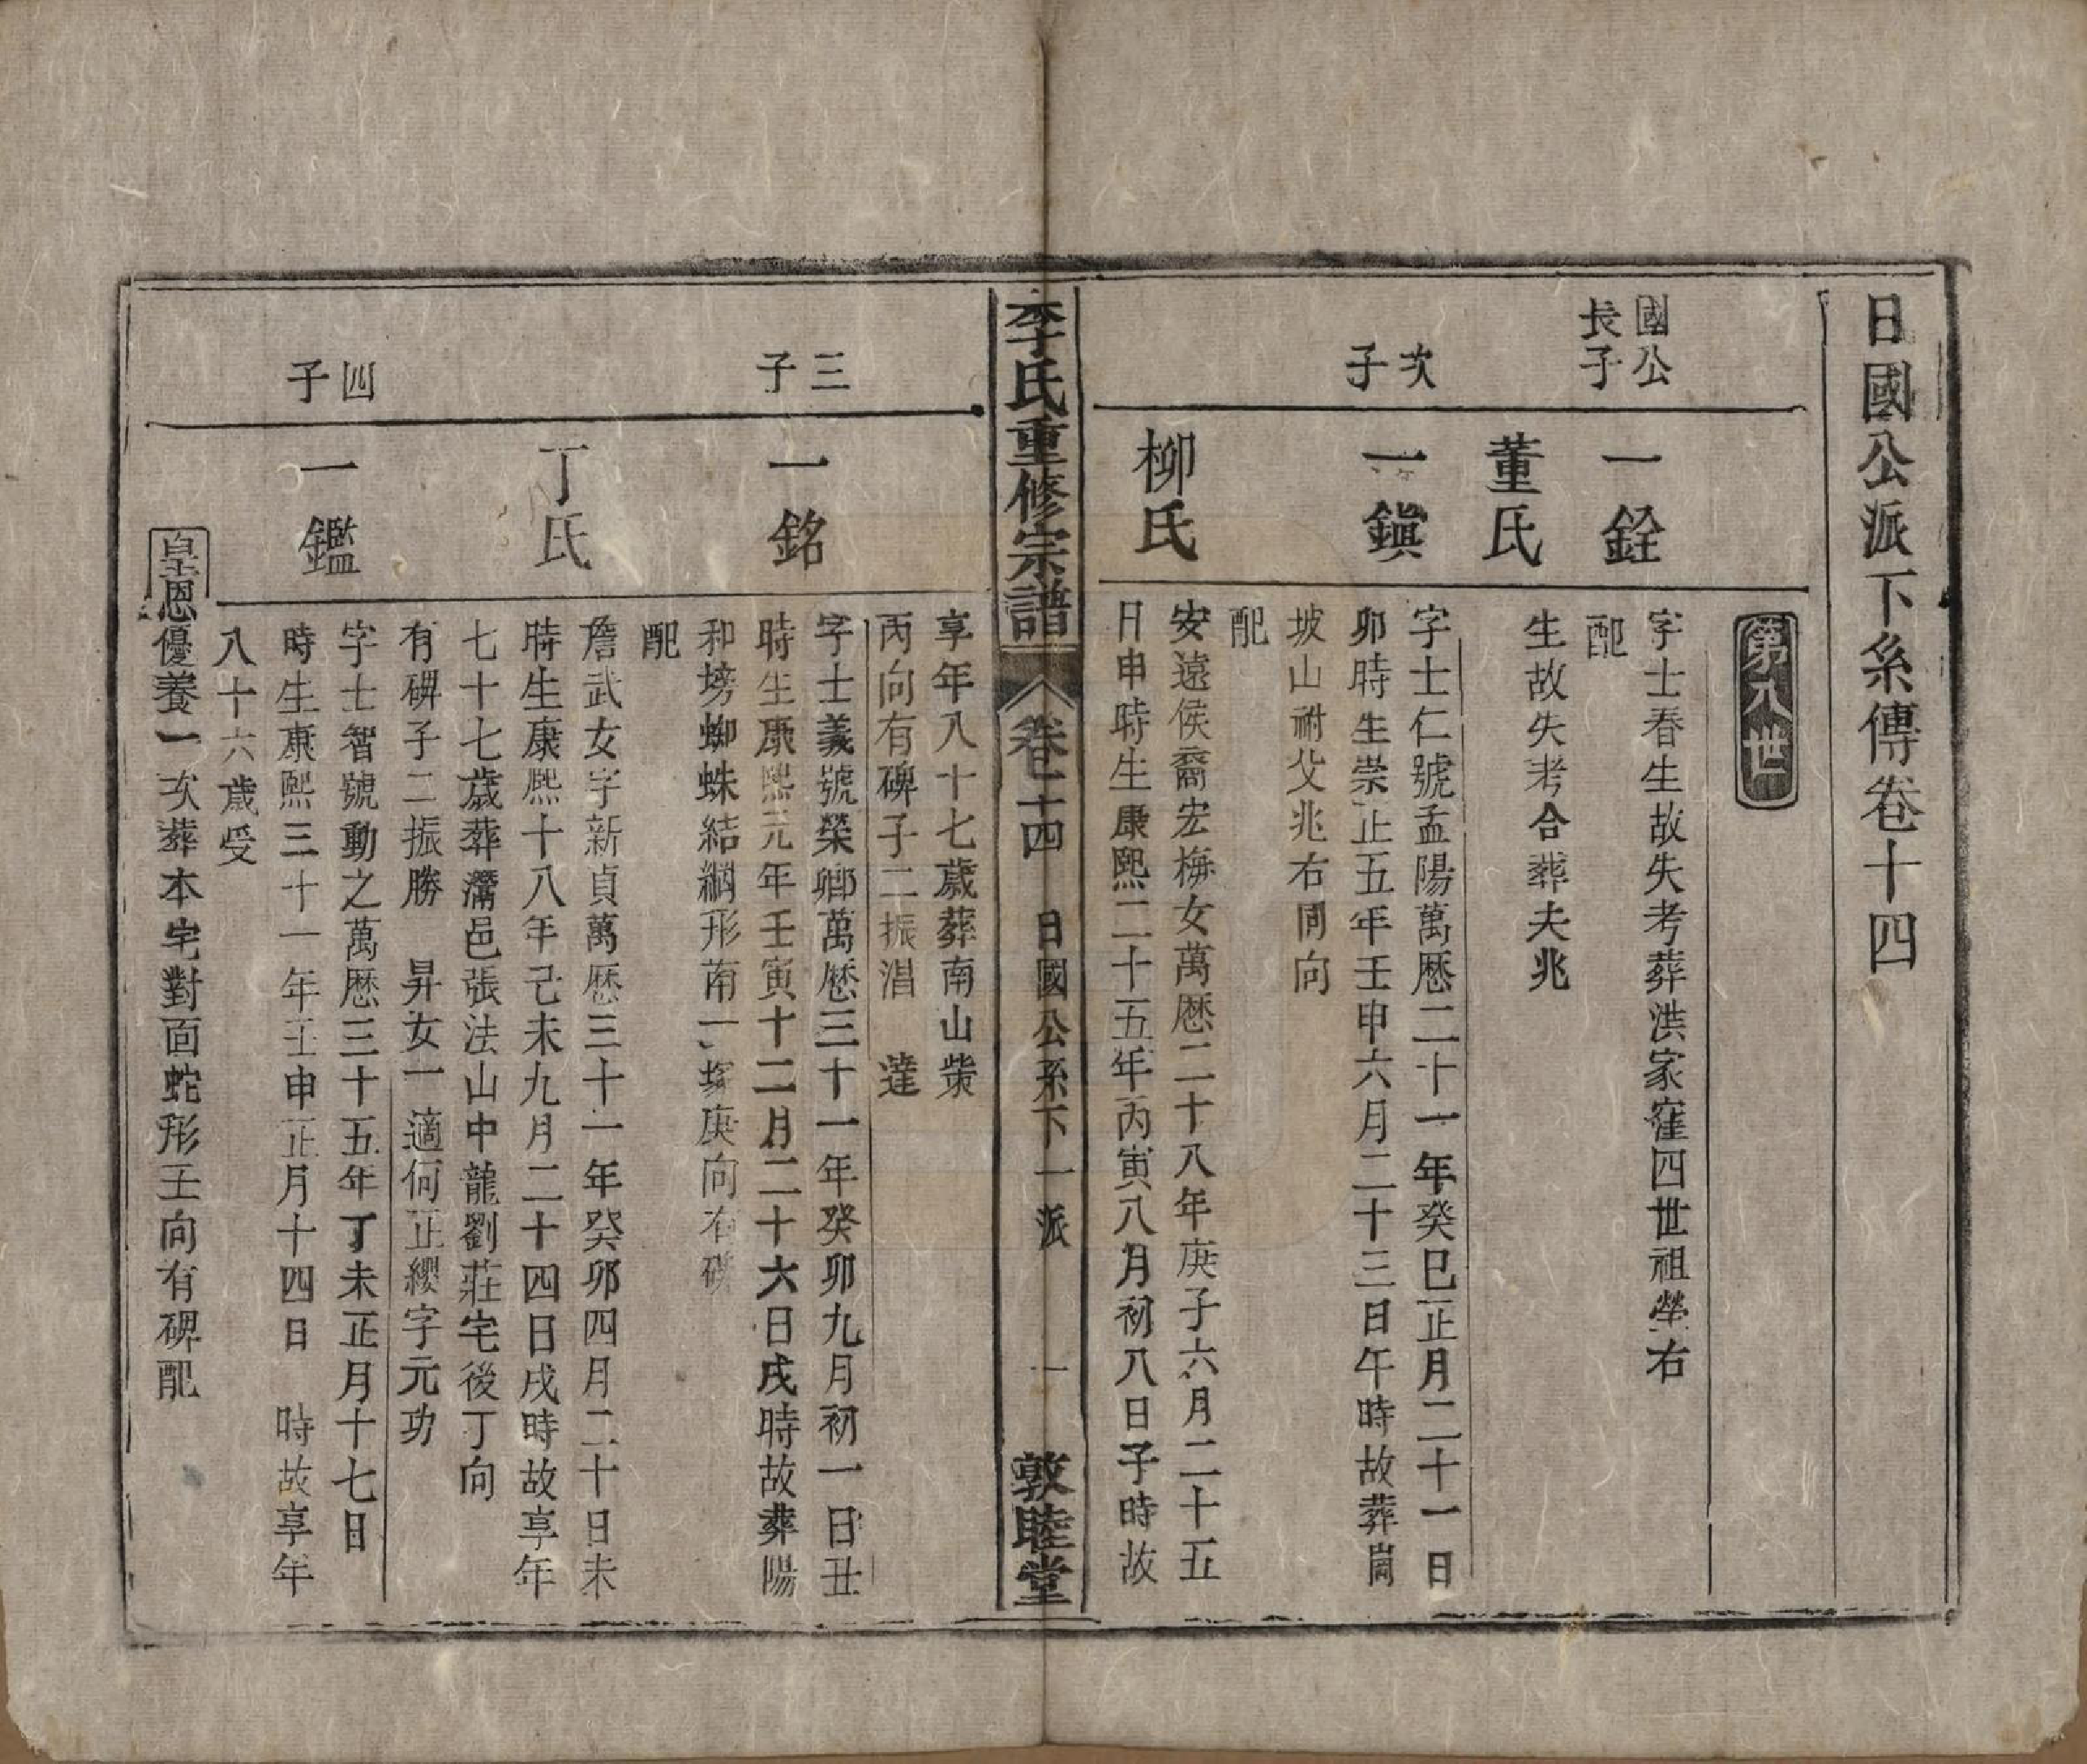 日國公派下系傳卷十四
第八世
國公
長子
一銓
字士春生故失考葬洪家窪四世祖塋右
配
董氏
生故失考合葬夫兆
次
子
一鎮
字士仁號孟陽萬歷二十一年癸巳正月二十一日
卯時生崇正五年壬申六月二十三日午時故葬崗
坡山祔父兆右同向
配
柳氏
安遠侯裔宏梅女萬歷二十八年庚子六月二十五
日申時生康熙二十五年丙寅八月初八日子時故
李氏重修宗譜
卷十四
日國公系下一派
一
敦睦堂
享年八十七歲葬南山柴
丙向有碑子二振淐 達
三
子
一銘
字士義號榮鄉萬歷三十一年癸卯九月初一日丑
時生康熙元年壬寅十二月二十六日戌時故葬陽
和塝蜘蛛結網形葡一塚庚向有碑
配
丁氏
詹武女字新貞萬歷三十一年癸卯四月二十日未
時生康熙十八年己未九月二十四日戌時故享年
七十七歲葬灊邑張法山中龍劉莊宅後丁向
有碑子二振勝 昇女一適何正纓字元功
四
子
一鑑
字士智號動之萬歷三十五年丁未正月十七日
時生康熙三十一年壬申正月十四日 時故享年
八十六歲受
皇恩優養一次葬本宅對面蛇形壬向有碑配